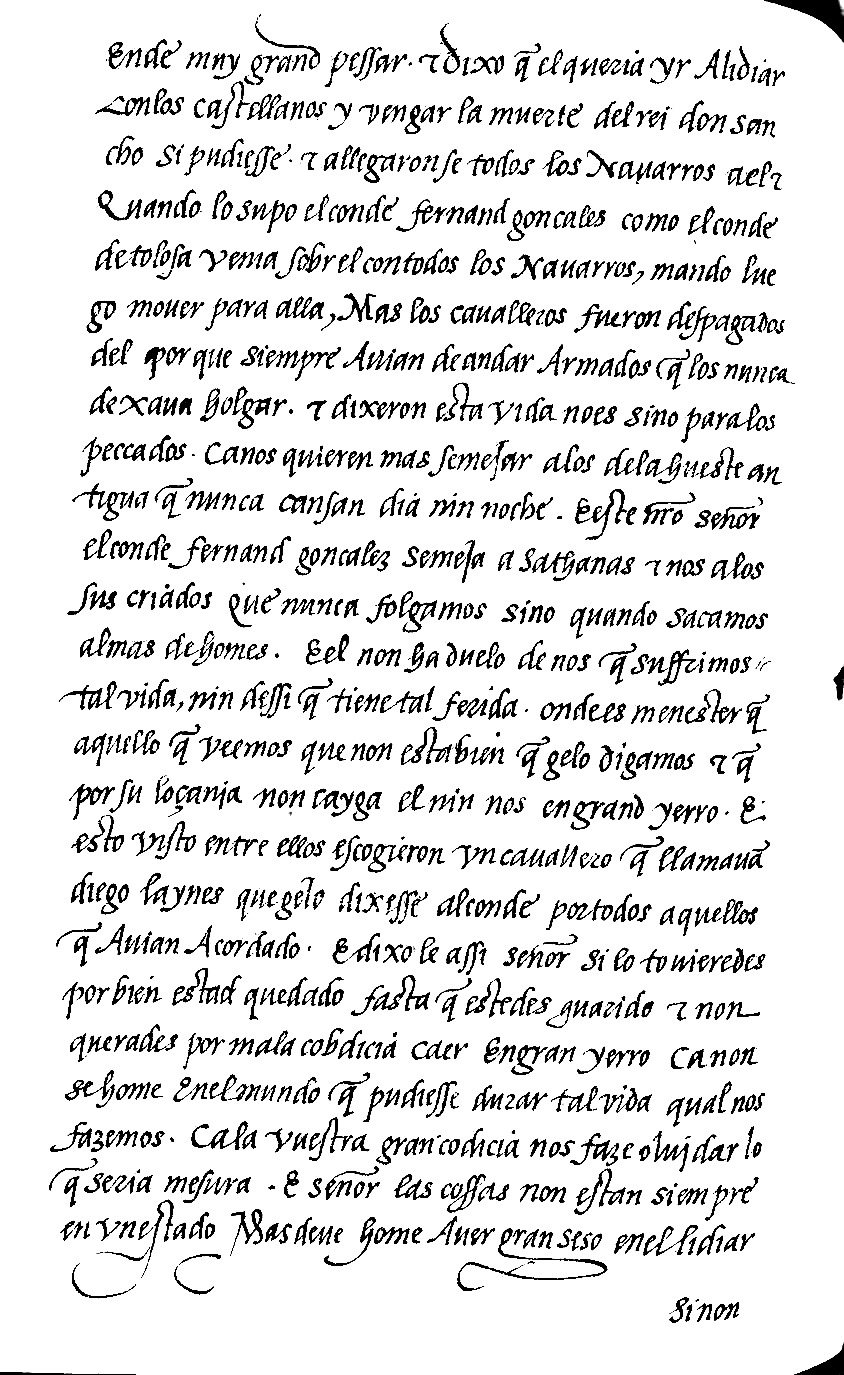 Ende muy grand pessar. τ dixo q̃ el queria yr Alidiar
Conlos castellanos y vengar la muerte del rei don san
cho si pudiesse. τ allegaronse todos los Nauarros ael τ
Quando lo supo el conde fernand goncales como el conde
de tolosa venia sobrel con todos los Nauarros, mando lue
go mouer para alla, Mas los caualleros fueron despagados
del porque siempre Auian de andar Armados q̃ los nunca
dexaua holgar. τ dixeron esta vida noes sino para los
peccados. Canos quieren mas semejar alos dela hueste an
tigua q̃ nunca cansan dia nin noche. E este nr̃o señor
el conde fernand goncalez semeja a sathanas τ nos alos
sus criados que nunca folgamos sino quando sacamos
almas de homes. E el non ha duelo de nos q̃ suffrimos
tal vida, nin dessi q̃ tiene tal ferida. onde es menester q̃
aquello q̃ veemos que non esta bien q̃ gelo digamos τ q̃
por su loçania non cayga el nin nos en grand yerro. E
esto visto entre ellos escogieron vn cauallero q̃ llamauã
diego laynes que gelo dixesse al conde por todos aquellos
q̃ Auian Acordado. E dixo le assi señor si lo touieredes
por bien estad quedado fasta q̃ estedes guarido τ non
querades por mala cobdicia caer Engran yerro Canon
se home Enel mundo q̃ pudiesse durar tal vida qual nos
fazemos. Ca la vuestra gran codicia nos faze olvidar lo
q̃ seria mesura. E señor las cossas non estan siempre
en vn estado Mas deue home Auer gran seso enel lidiar
Sinon